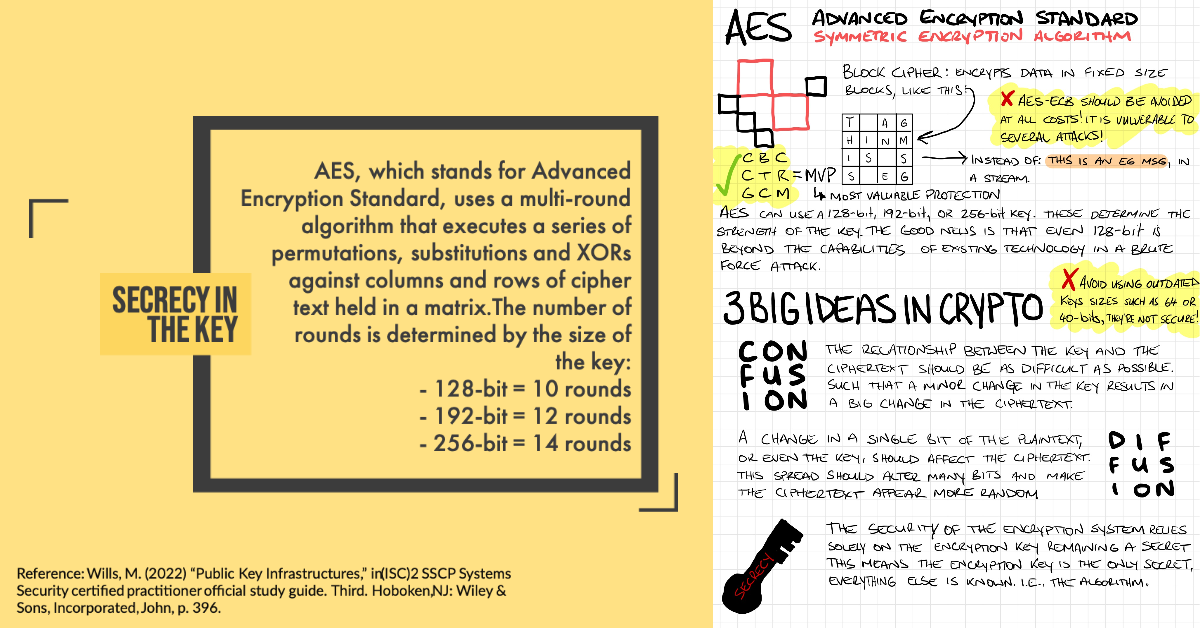 SECRECY IN
THE KEY
AES, which stands for Advanced
Encryption Standard, uses a multi-round
algorithm that executes a series of
permutations, substitutions and XORs
against columns and rows of cipher
text held in a matrix.The number of
rounds is determined by the size of
the key:
- 128-bit = 10 rounds
- 192-bit = 12 rounds
- 256-bit = 14 rounds
Reference: Wills, M. (2022) “Public Key Infrastructures,” in(ISC)2 SSCP Systems
Security certified practitioner official study guide. Third. Hoboken,NJ: Wiley &
Sons, Incorporated, John, p. 396.
AES ADVANCED ENCRYPTION STANDARD
SYMMETRIC ENCRYPTION ALGORITHM
BLOCK CIPHER: ENCRYPTS DATA IN FIXED SIZE
BLOCKS, LIKE THIS!
X AES-ECB SHOULD BE AVOIDED
AT ALL COSTS! IT IS VULNERABLE TO
SEVERAL ATTACKS!
T A G
H I N M
I S S
S E G
INSTEAD OF: THIS IS AN EG MSG, IN
A STREAM.
✓ CBC
CTR = MVP
GCM
↳ MOST VALUABLE PROTECTION
AES CAN USE A 128-bit, 192-bit, OR 256-bit KEY. THESE DETERMINE THE
STRENGTH OF THE KEY. THE GOOD NEWS IS THAT EVEN 128-bit IS
BEYOND THE CAPABILITIES OF EXISTING TECHNOLOGY IN A BRUTE
FORCE ATTACK.
X AVOID USING OUTDATED
KEYS SIZES SUCH AS 64 OR
40-bits, THEY'RE NOT SECURE!
3 BIG IDEAS IN CRYPTO
CON
FUS
ION
THE RELATIONSHIP BETWEEN THE KEY AND THE
CIPHERTEXT SHOULD BE AS DIFFICULT AS POSSIBLE.
SUCH THAT A MINOR CHANGE IN THE KEY RESULTS IN
A BIG CHANGE IN THE CIPHERTEXT.
A CHANGE IN A SINGLE BIT OF THE PLAINTEXT,
OR EVEN THE KEY, SHOULD AFFECT THE CIPHERTEXT.
THIS SPREAD SHOULD ALTER MANY BITS AND MAKE
THE CIPHERTEXT APPEAR MORE RANDOM
DIF
FUS
ION
SECRECY
THE SECURITY OF THE ENCRYPTION SYSTEM RELIES
SOLELY ON THE ENCRYPTION KEY REMAINING A SECRET
THIS MEANS THE ENCRYPTION KEY IS THE ONLY SECRET,
EVERYTHING ELSE IS KNOWN. I.E., THE ALGORITHM.